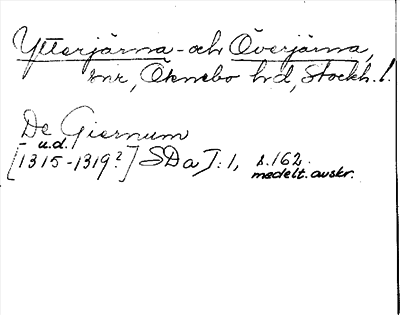 Ytterjärna- och Överjärna,
snr, Öknebo hd, Stockh. l.
De Giernum
u.d.
[1315-1319?] SDa I: 1, s. 162.
medelt. avskr.